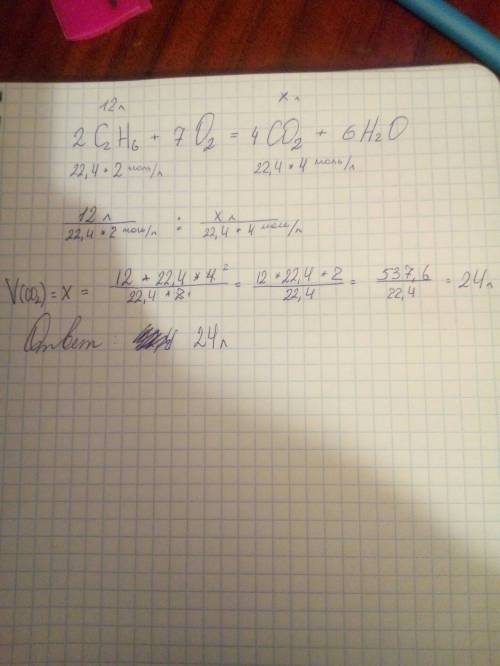 12л хл
2C₂H₆ + 7O₂ = 4CO₂ + 6H₂O
22,4*2 моль/л 22,4*4 моль/л
12л / 22,4*2 моль/л : хл / 22,4*4 моль/л
V(CO₂) = X = 12*22,4*4² / 22,4*2¹ = 12*22,4*2 / 22,4 = 537,6 / 22,4 = 24л
Ответ: 24л